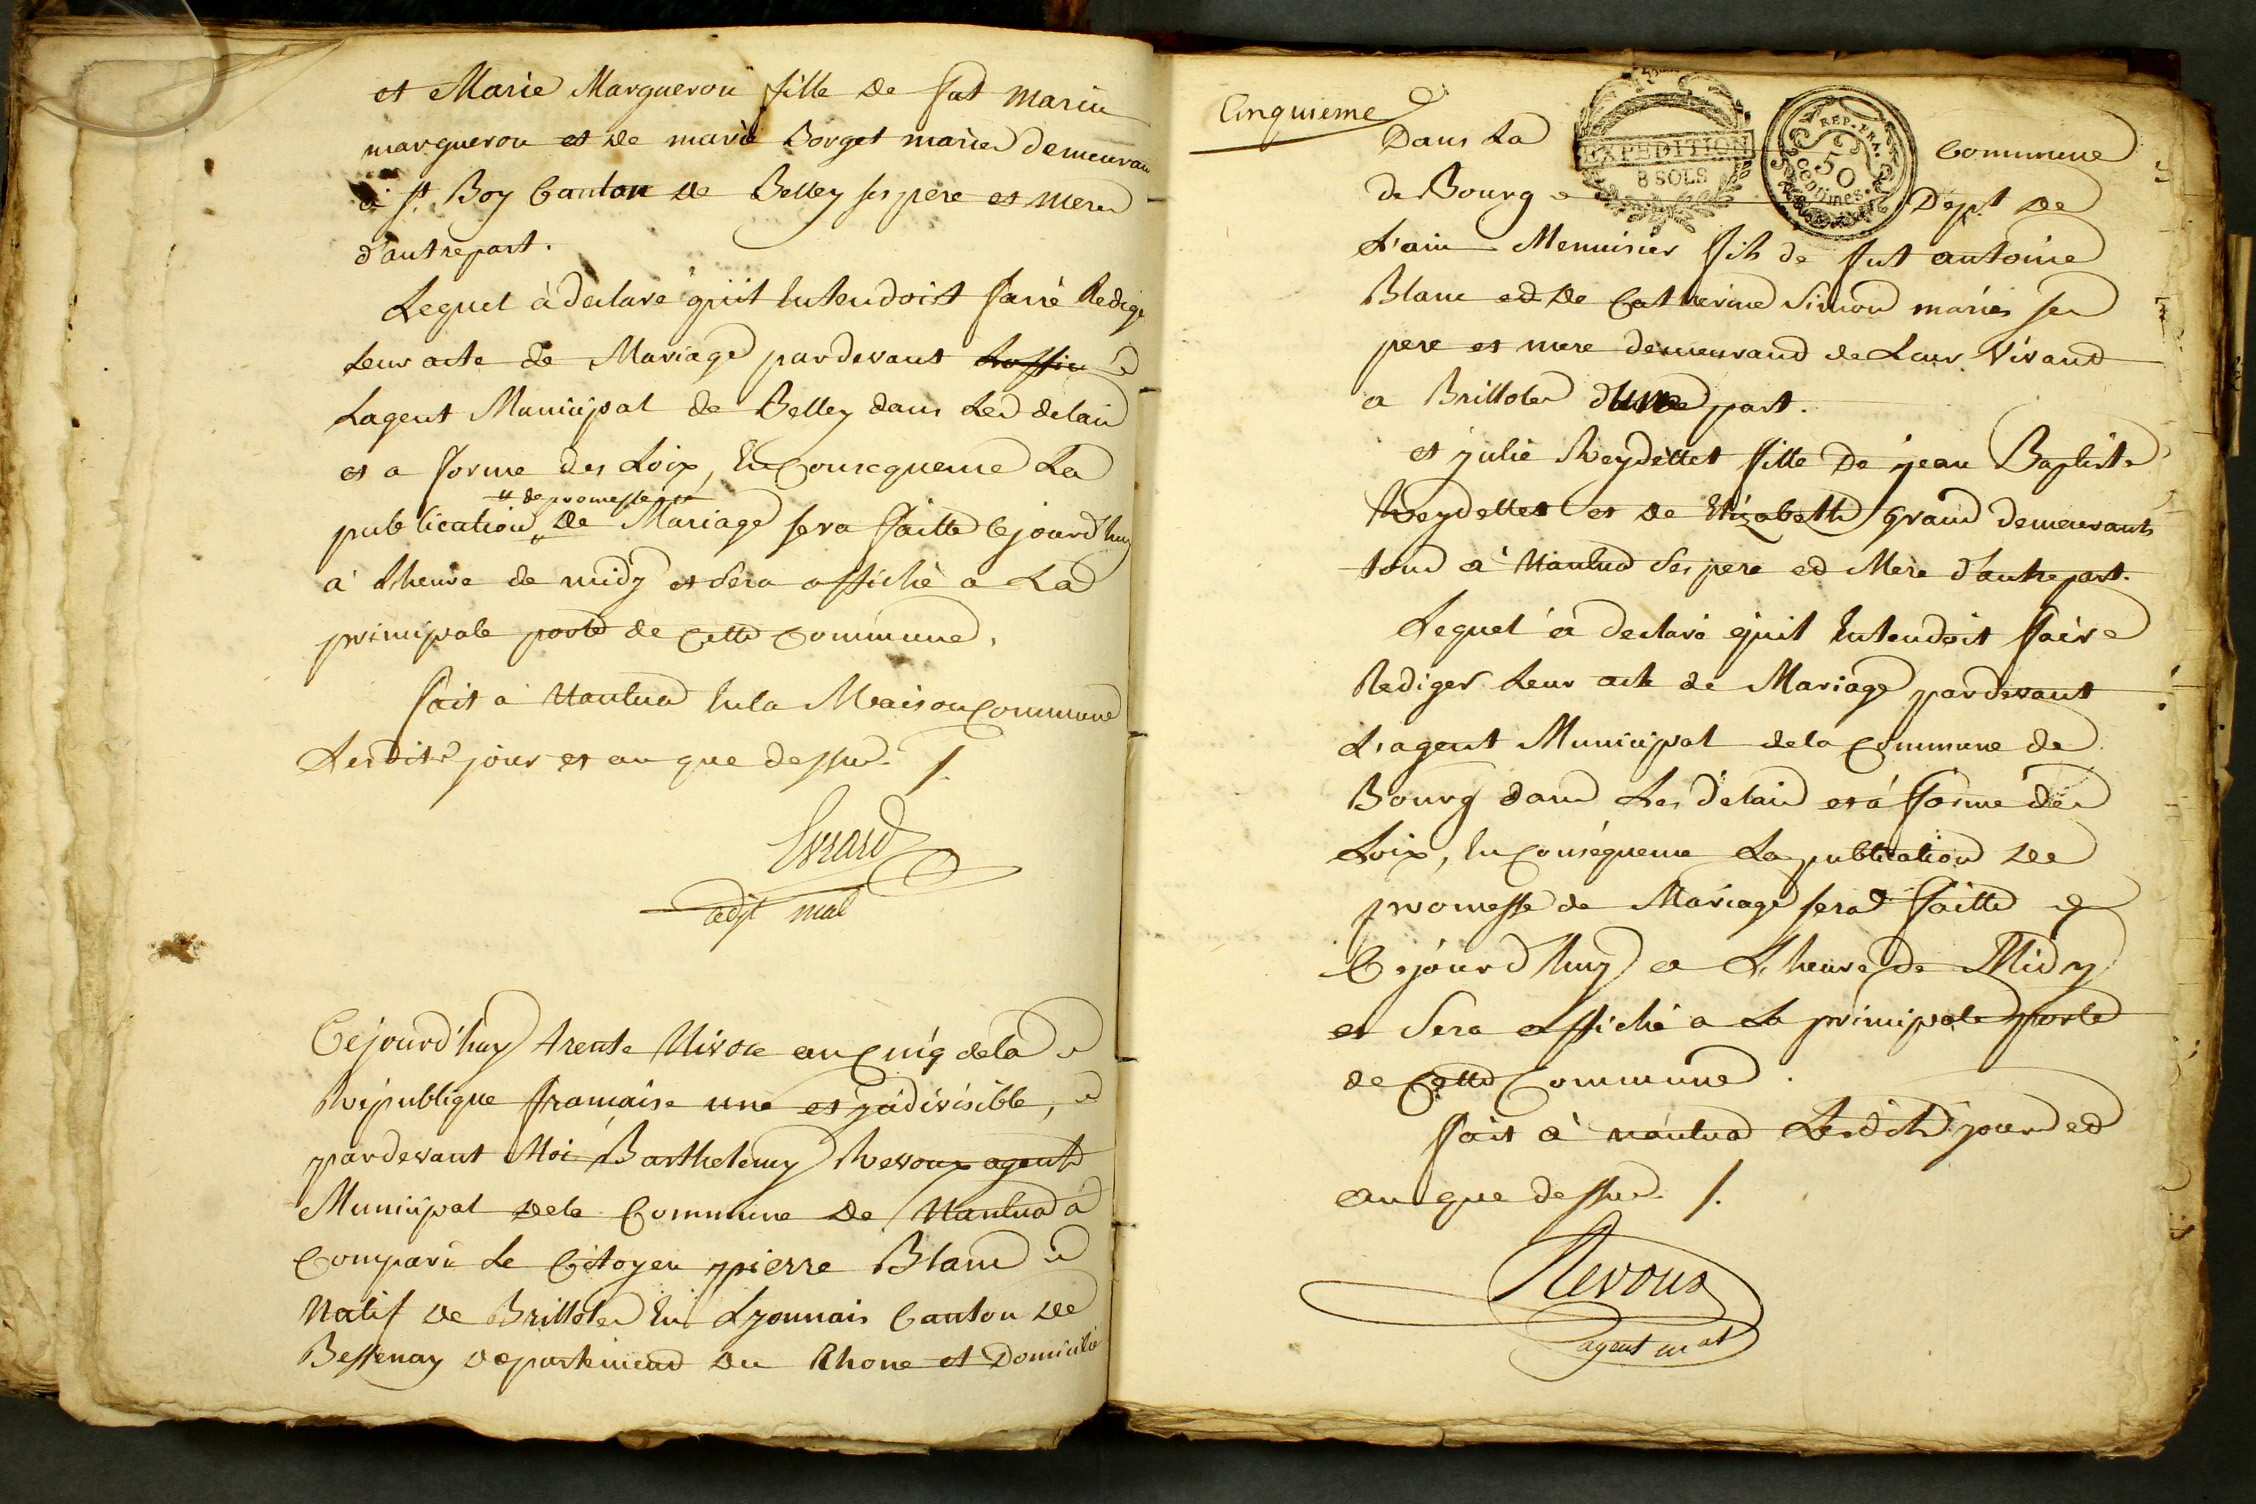 et Marie Margueron fille de fut Marin
margueron et de marie Borget mariés demeuran
à st. Boy Canton de Belley ses pere et mere
d'autre part.
Lequel à declaré quil Entendoit faire Redige
Leur acte de Mariage pardevant
Lagent Municipal de Belley dans Les delais
et a forme des Loix, En Consequence La
publication de Mariage sera faitte Cejourd'huy
de promesse
à Lheure de midy et Sera affiché a La
principale porte de Cette Commune.
fait à Nantua En la Maison Commune
Lesdits jour et an que dessus. /.
Evrard
adjt mal
Cejourd'huy trente Nivose an Cinq de la
République française une et indivisible,
pardevant Moi Barthelemy Revoux agent
Municipal de la Commune de Nantua à
Comparu Le Citoyen pierre Blanc
Natif de Brillole En Lyonnais Canton de
Bessenay departement du Rhone et Domicilié
Cinquieme
EXPEDITION
8 SOLS
REP. FRA.
50
Centimes.
Dans La Commune
de Bourg Dépt. de
L'ain Menuisier fils de fut antoine
Blanc et de Catherine Simon mariés ses
pere et mere demeurand de Leur Vivant
a Brillole d'une part.
et julie Reydellet fille De jean Baptiste
Reydellet et de Elizabeth grand demeurants
tous à Nantua Ses pere et Mère d'autre part.
Lequel à declaré quil Entendoit faire
Rediger Leur acte de Mariage pardevant
L'agent Municipal de la Commune de
Bourg dans Les délais et à forme des
Loix, En Conséquence La publication de
promesse de Mariage sera faitte
Cejourd'huy a L'heure de Midy
et Sera affiché a La principale porte
de Cette Commune.
fait à nantua Lesdits jour et
an que dessus. /.
Revoux
agent mal